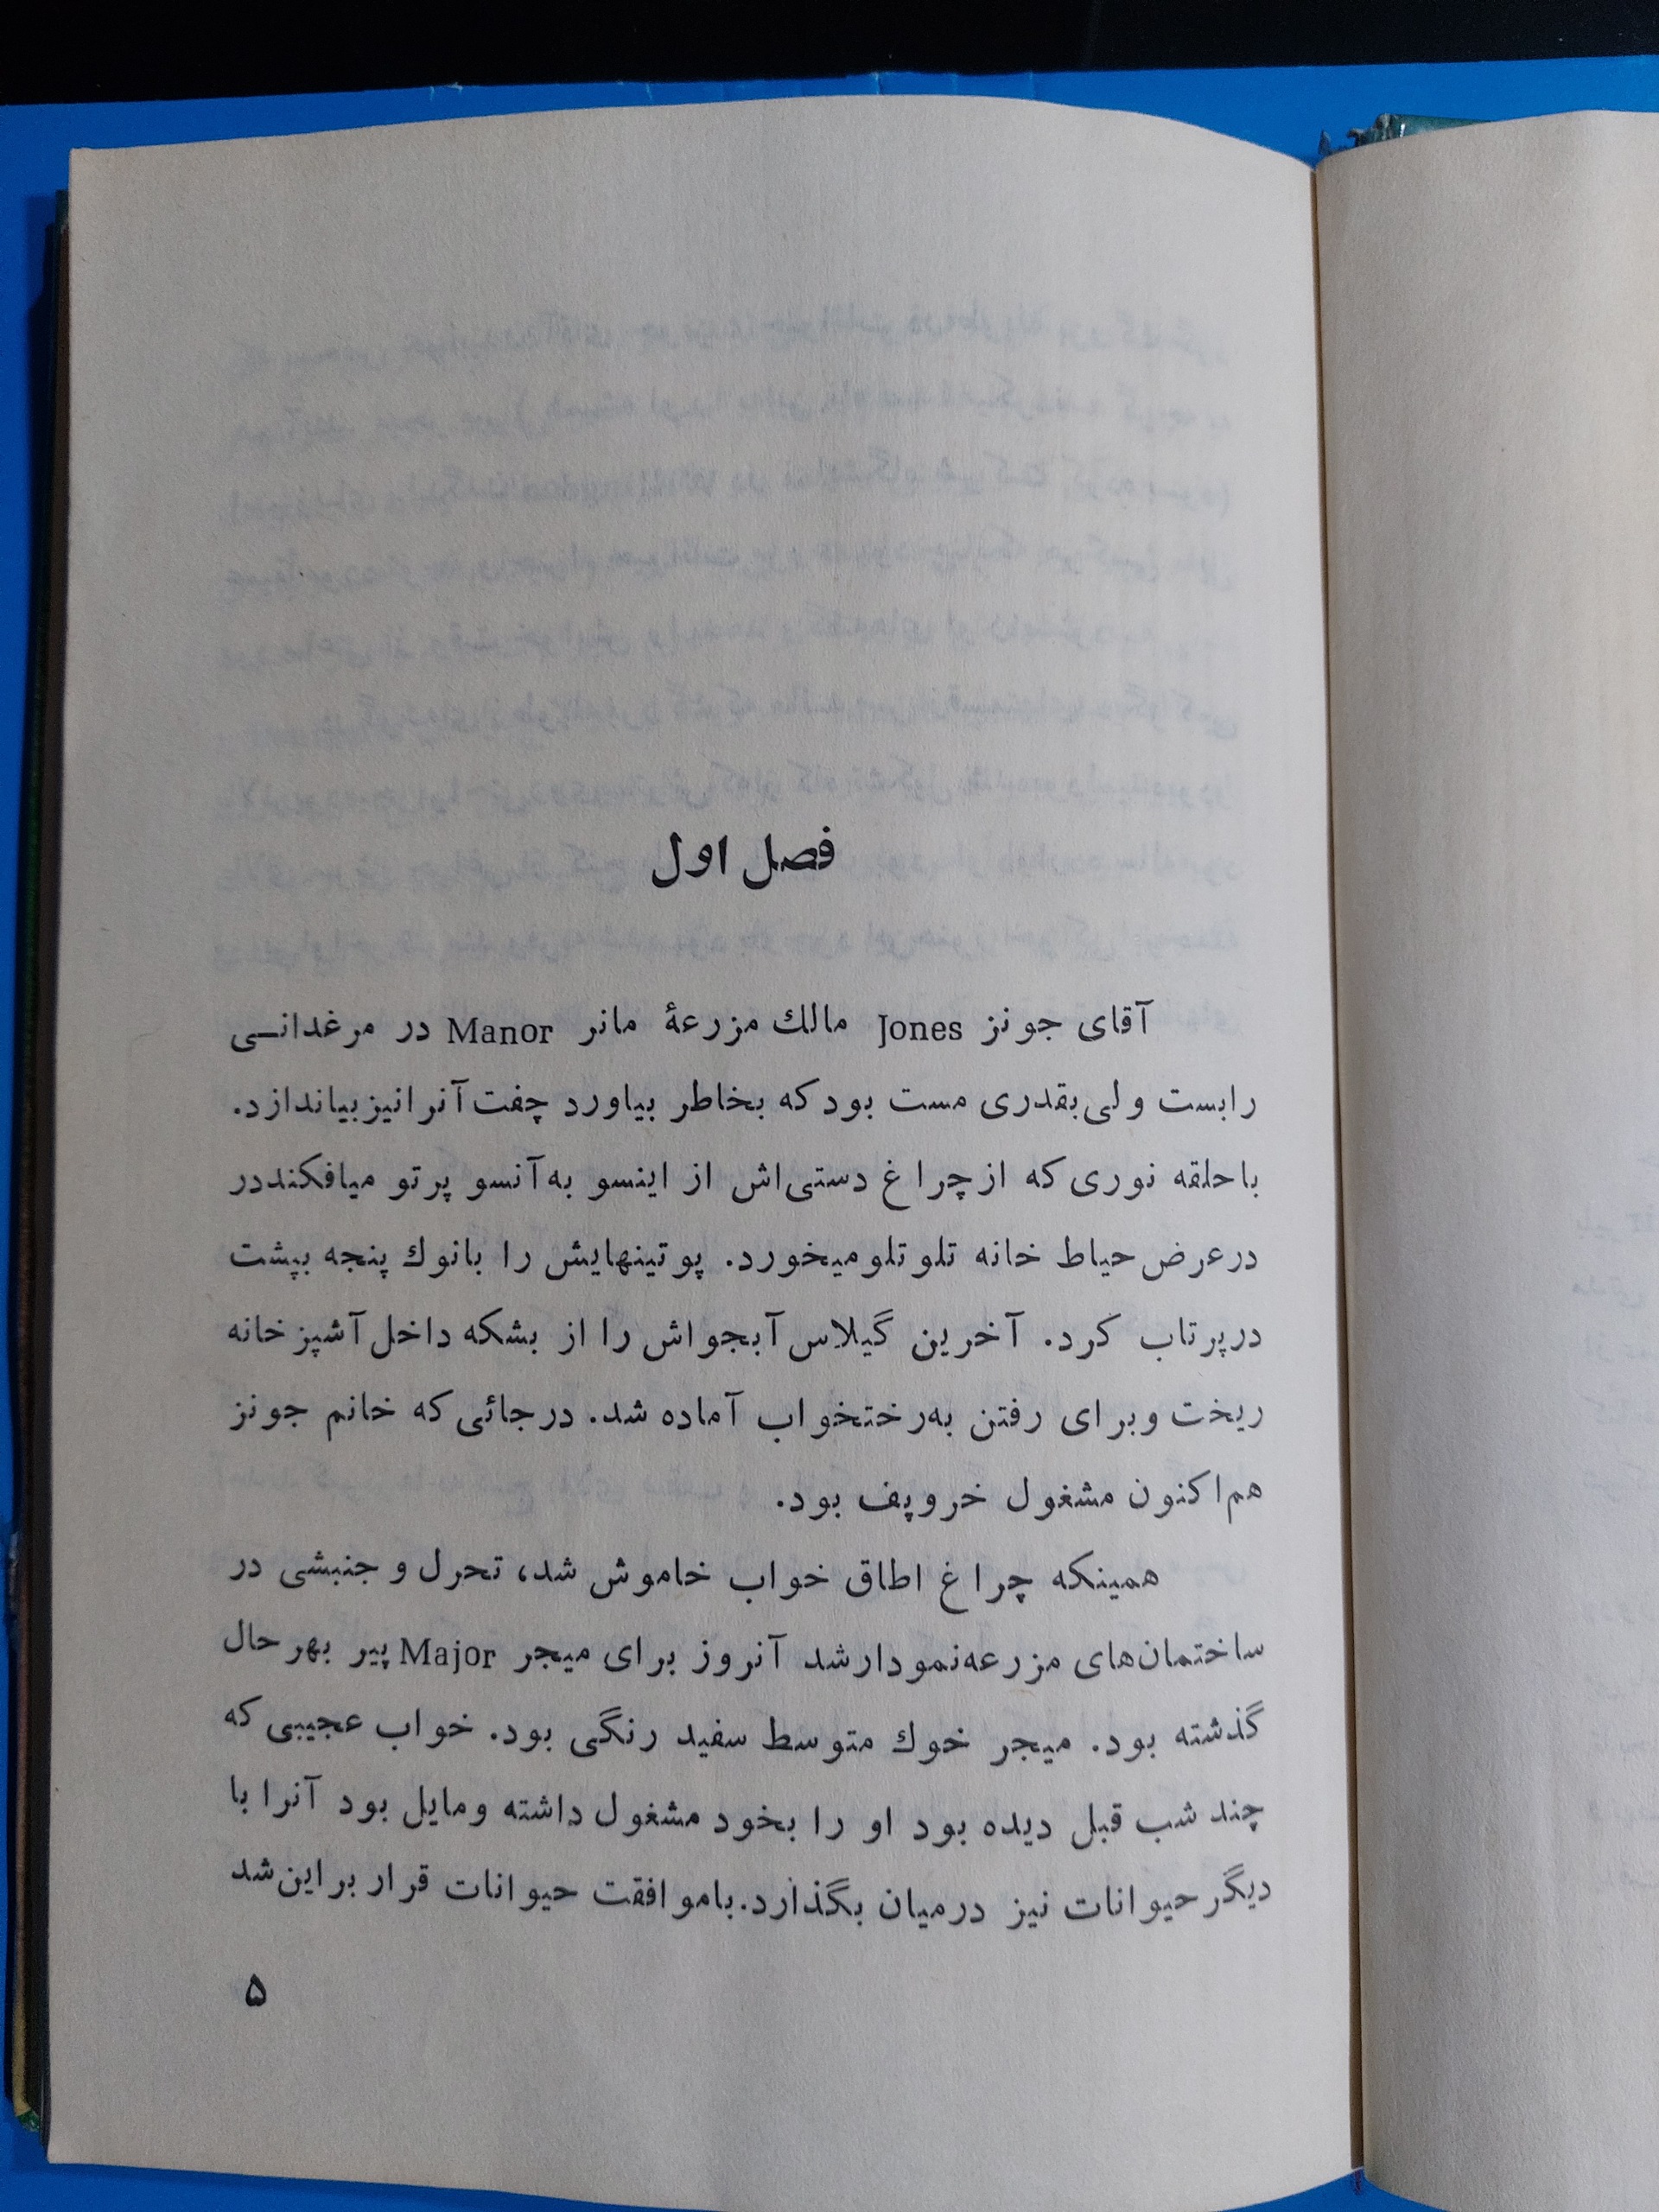 فصل اول
آقای جونز Jones مالك مزرعهٔ مانر Manor در مرغدانـی
رابست ولی‌بقدری مست بود که بخاطر بیاورد چفت آنرانیزبیاندازد.
باحلقه نوری که ازچراغ دستی‌اش از اینسو به‌آنسو پرتو میافکنددر
درعرض حیاط خانه تلوتلومیخورد. پوتینهایش را بانوك پنجه بپشت
درپرتاب کرد. آخرین گیلاس آبجواش را از بشکه داخل آشپزخانه
ریخت وبرای رفتن به‌رختخواب آماده شد. درجائی که خانم جونز
هم‌اکنون مشغول خروپف بود.
همینکه چراغ اطاق خواب خاموش شد، تحرل و جنبشی در
ساختمان‌های مزرعه‌نمودارشد آنروز برای میجر Major پیر بهرحال
گذشته بود. میجر خوك متوسط سفید رنگی بود. خواب عجیبی که
چند شب قبل دیده بود او را بخود مشغول داشته ومایل بود آنرا با
دیگرحیوانات نیز درمیان بگذارد.باموافقت حیوانات قرار براین‌شد
۵